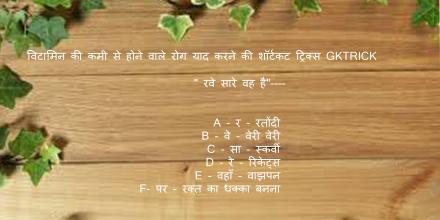 विटामिन की कमी से होने वाले रोग याद करने की शॉर्टकट ट्रिक्स GKTRICK
" रवे सारे वह है"----
A - र - रतोंदी
B - वे - वेरी वेरी
C - सा - स्कर्वी
D - रे - रिकेट्स
E - वहाँ - वाझपन
F- पर - रक्त का धक्का बनना